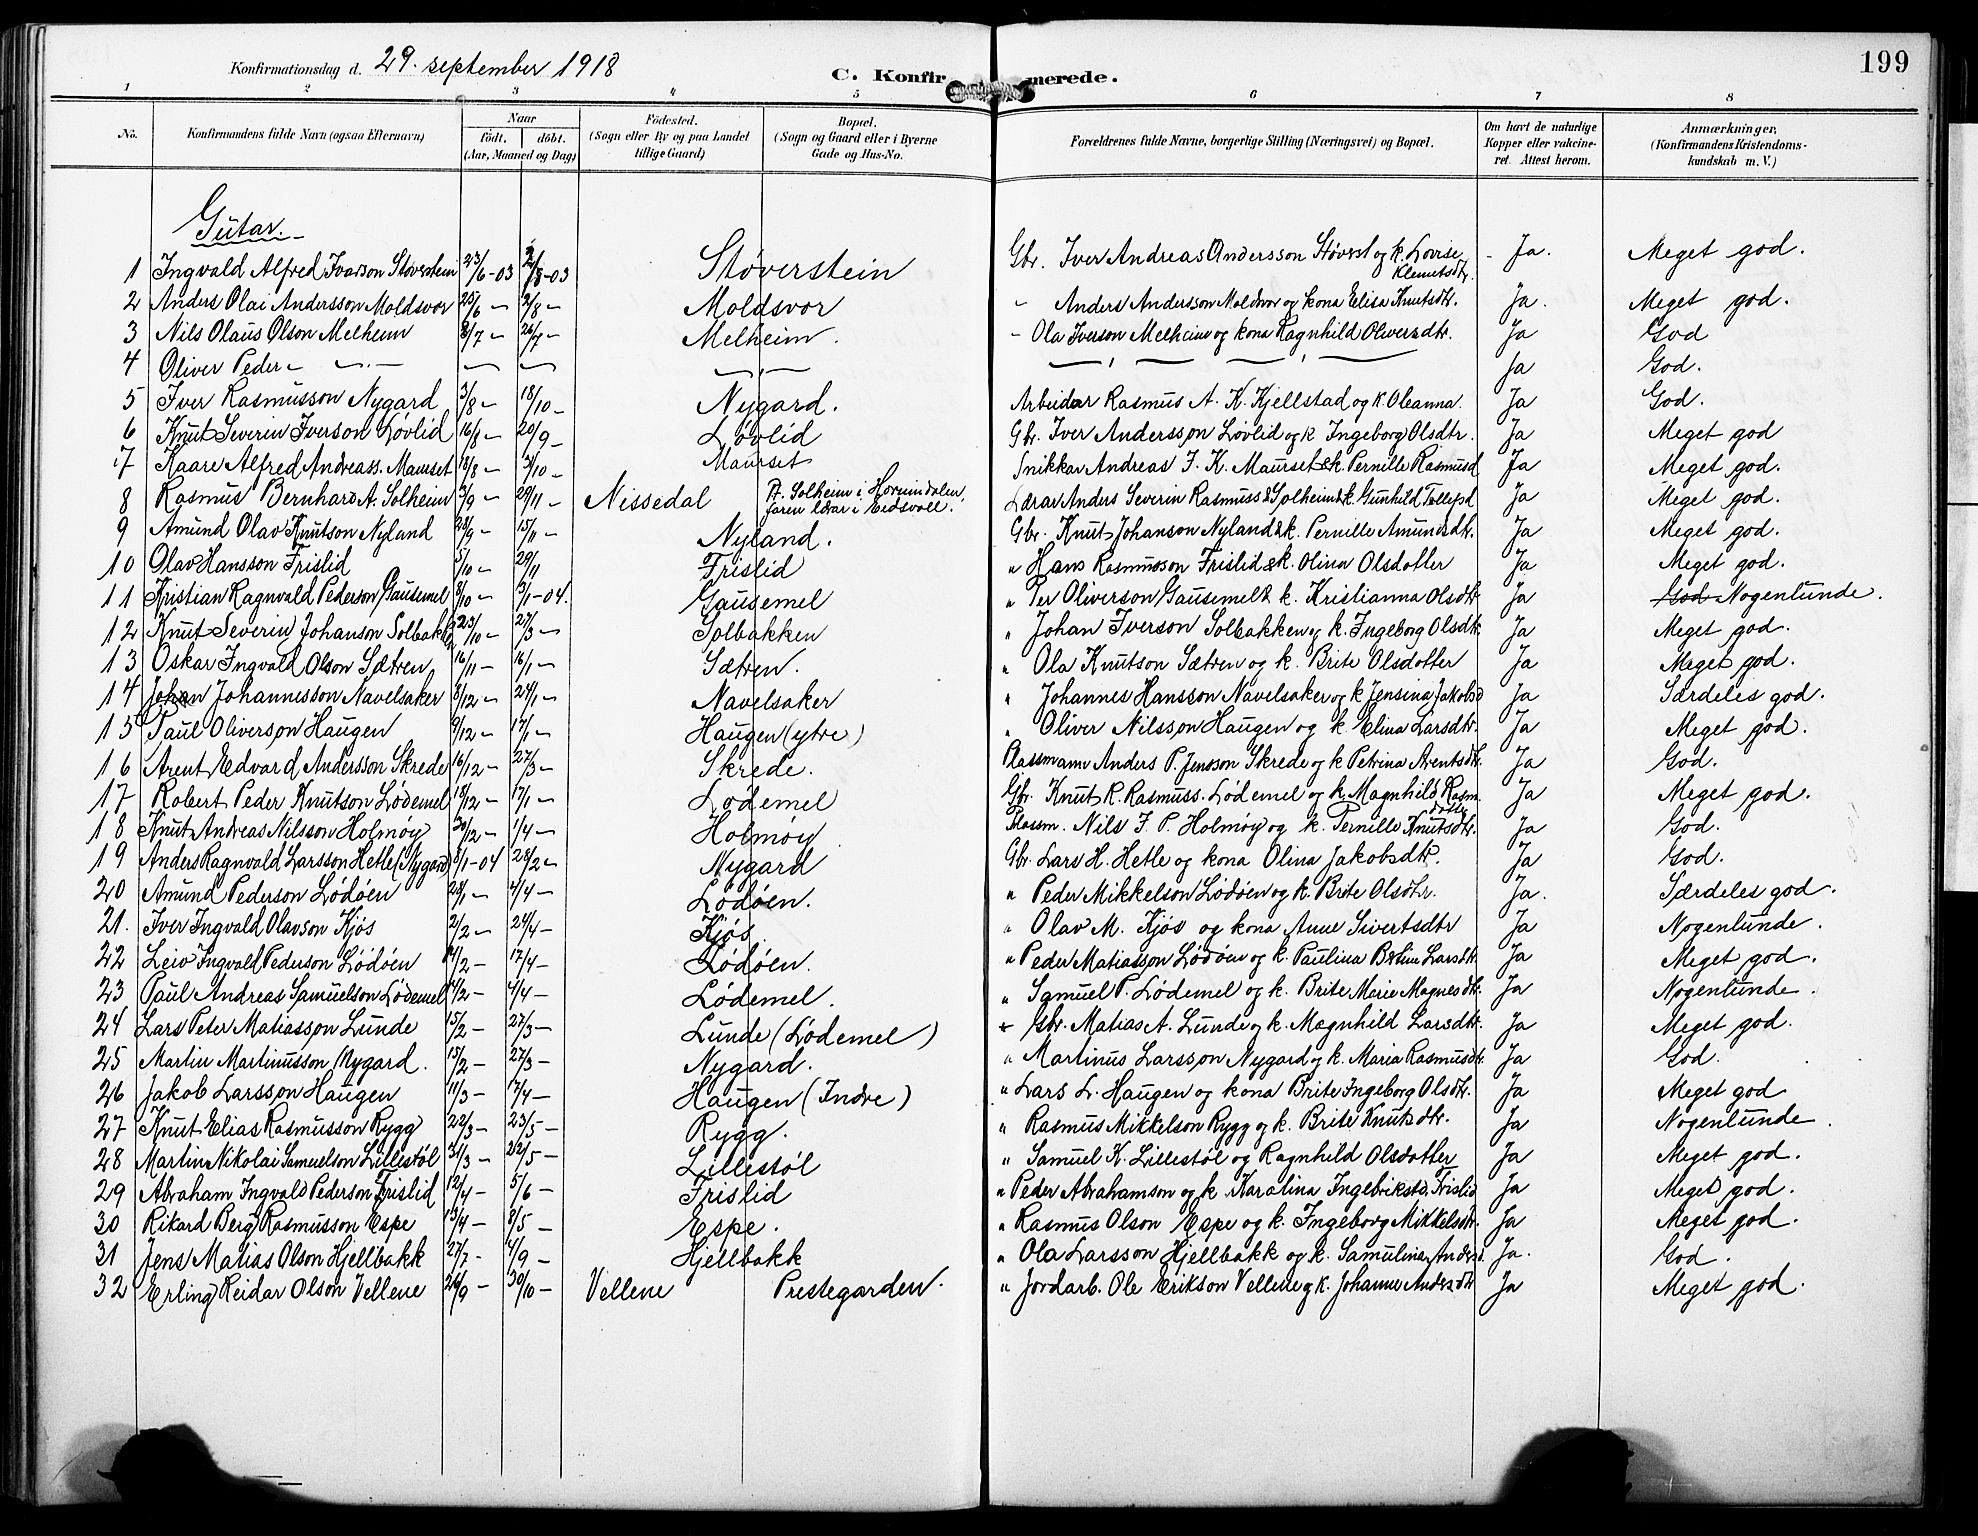 199
Konfirmationsdag d. 29. september 1918 C. Konfirmerede.
1 2 3 4 5 6 7 8
No. Konfirmandens fulde Navn (ogsaa Efternavn) Naar født. døbt. (Aar, Maaned og Dag) Fødested. (Sogn eller By og paa Landet tillige Gaard) Bopæl. (Sogn og Gaard eller i Byerne Gade og Hus-No. Forældrenes fulde Navne, borgerlige Stilling (Næringsvei) og Bopæl. Om havt de naturlige Kopper eller vakcineret. Attest herom. Anmærkninger, (Konfirmandens Kristendomskundskab m. V.)
Gutar.
1 Ingvald Alfred Ivarson Støverstein 23/6-03 2/8-03 Støverstein Gbr. Iver Andreas Andersson Støverst og k. Lovise Klemetsdtr. Ja. Meget god.
2 Anders Olai Andersson Moldsvor 25/6 — 2/8 — Moldsvor " Anders Andersson Moldsvor og kona Elisa Knutsdtr. Ja. Meget god.
3 Nils Olaus Olson Melheim 8/7 — 26/7 — Melheim. - Ola Iverson Melheim og kona Ragnhild Oliversdtr. Ja God
4 Oliver Peder — — — — — — Ja God.
5 Iver Rasmusson Nygard 3/8 — 18/10 — Nygard. Arbeidar Rasmus A. K. Kjellstad og k. Oleanna. Ja God.
6 Knut Severin Iverson Løvlid 16/8 — 20/9 — Løvlid Gbr. Iver Andersson Løvlid og k Ingeborg Olsdtr. Ja Meget god
7 Kaare Alfred Andreass. Maurset 18/8 — 3/10 — Maurset Snikkar Andreas J. K. Maurset & k. Pernille Rasmusd Ja Meget god.
8 Rasmus Bernhard A. Solheim 3/9 — 29/11 — Nissedal Pt. Solheim i Hornindalen, faren lærar i Eidsvoll. Lærar Anders Severin Rasmuss Solheim & k. Gunhild Tollefsd Ja Meget god.
9 Amund Olav Knutson Nyland 28/9 — 15/11 — Nyland. Gbr. Knut Johanson Nyland & k. Pernille Amundsdtr. Ja Meget god.
10 Olav Hansson Frislid 5/10 — 29/11 Frislid " Hans Rasmusson Frislid & k. Olina Olsdotter Ja Meget god.
11 Kristian Ragnvald Pederson Gausemel 8/10 — 3/1-04. Gausemel " Per Oliverson Gausemel & k. Kristianna Olsdtr Ja God Nogenlunde.
12 Knut Severin Johanson Solbakk 23/10 — 27/3 — Solbakken " Johan Iverson Solbakken og k. Ingeborg Olsdtr. Ja Meget god.
13 Oskar Ingvald Olson Sætren 16/11 — 16/1 — Sætren. " Ola Knutson Sætren og k. Brite Olsdotter Ja Meget god.
14 Johan Johannesson Navelsaker 8/12 — 24/1 — Navelsaker " Johannes Hansson Navelsaker og k Jensina Jakobsd Ja Særdeles god.
15 Paul Oliverson Haugen 9/12 — 17/1 — Haugen (ytre) " Oliver Nilsson Haugen og k Elina Larsdtr. Ja Meget god.
16 Arent Edvard Andersson Skrede 16/12 — 27/3 — Skrede. Plassmann Anders P. Jensson Skrede og k Petrina Arentsdtr. Ja God.
17 Robert Peder Knutson Lødemel 18/12 — 17/1 — Lødemel Gbr. Knut R. Rasmuss. Lødemel og k. Magnhild Rasm. dotter Ja Meget god.
18 Knut Andreas Nilsson Holmøy 30/12 — 1/4 — Holmøy Plassm. Nils J. P. Holmøy og k. Pernille Knutsdtr. Ja God.
19 Anders Ragnvald Larsson Hetle (Nygard) 8/1-04 28/2 — Nygard Gbr. Lars H. Hetle og kona Olina Jakobsdtr. Ja God.
20 Amund Pederson Lødøen 28/1 — 4/4 — Lødøen. " Peder Mikkelson Lødøen og k. Brite Olsdtr. Ja. Særdeles god.
21. Iver Ingvald Olavson Kjøs 2/2 — 24/4 — Kjøs " Olav M. Kjøs og kona Anne Sivertsdtr Ja Nogenlunde.
22 Leiv Ingvald Pederson Lødøen 14/2 — 17/4 — Lødøen. " Peder Matiasson Lødøen og k. Paulina Larsdtr. Ja Meget god.
23 Paul Andreas Samuelson Lødemel 4/2 — 4/4 — Lødemel. " Samuel P. Lødemel og k. Brite Marie Magnesdtr. Ja Nogenlunde.
24 Lars Peter Matiasson Lunde 15/2 — 27/3 — Lunde (Lødemel) Gbr. Matias A. Lunde og k. Magnhild Larsdtr. Ja Meget god.
25 Martin Martinusson Nygard. 15/2 — 27/3 — Nygard. " Martinus Larsson Nygard og k. Maria Rasmusdtr. Ja God.
26 Jakob Larsson Haugen 11/3 — 17/4 — Haugen (Indre) " Lars L. Haugen og kona Brite Ingeborg Olsdtr. Ja Meget god
27 Knut Elias Rasmusson Rygg 22/3 — 23/5 — Rygg. " Rasmus Mikkelson Rygg og k. Brite Knutsdtr. Ja Nogenlunde.
28 Martin Nikolai Samuelson Lillestøl 31/3 — 22/5 — Lillestøl " Samuel K. Lillestøl og Ragnhild Olsdotter Ja Meget god.
29 Abraham Ingvald Pederson Frislid 12/4 — 5/6 — Frislid " Peder Abrahamson og k. Karolina Ingebrikstd. Frislid Ja Meget god.
30 Rikard Berg Rasmusson Espe 13/4 — 8/5 — Espe. " Rasmus Olson Espe og k. Ingeborg Mikkelsdtr. Ja Meget god.
31 Jens Matias Olson Hjellbakk 27/7 — 4/9 — Hjellbakk " Ola Larsson Hjellbakk og k. Samulina Anders. Ja. God.
32 Erling Reidar Olson Vellene 26/9 — 30/10 — Vellene Prestegarden. " Jordarb. Ole Erikson Vellene og k. Johanne Andersdtr Ja Meget god.